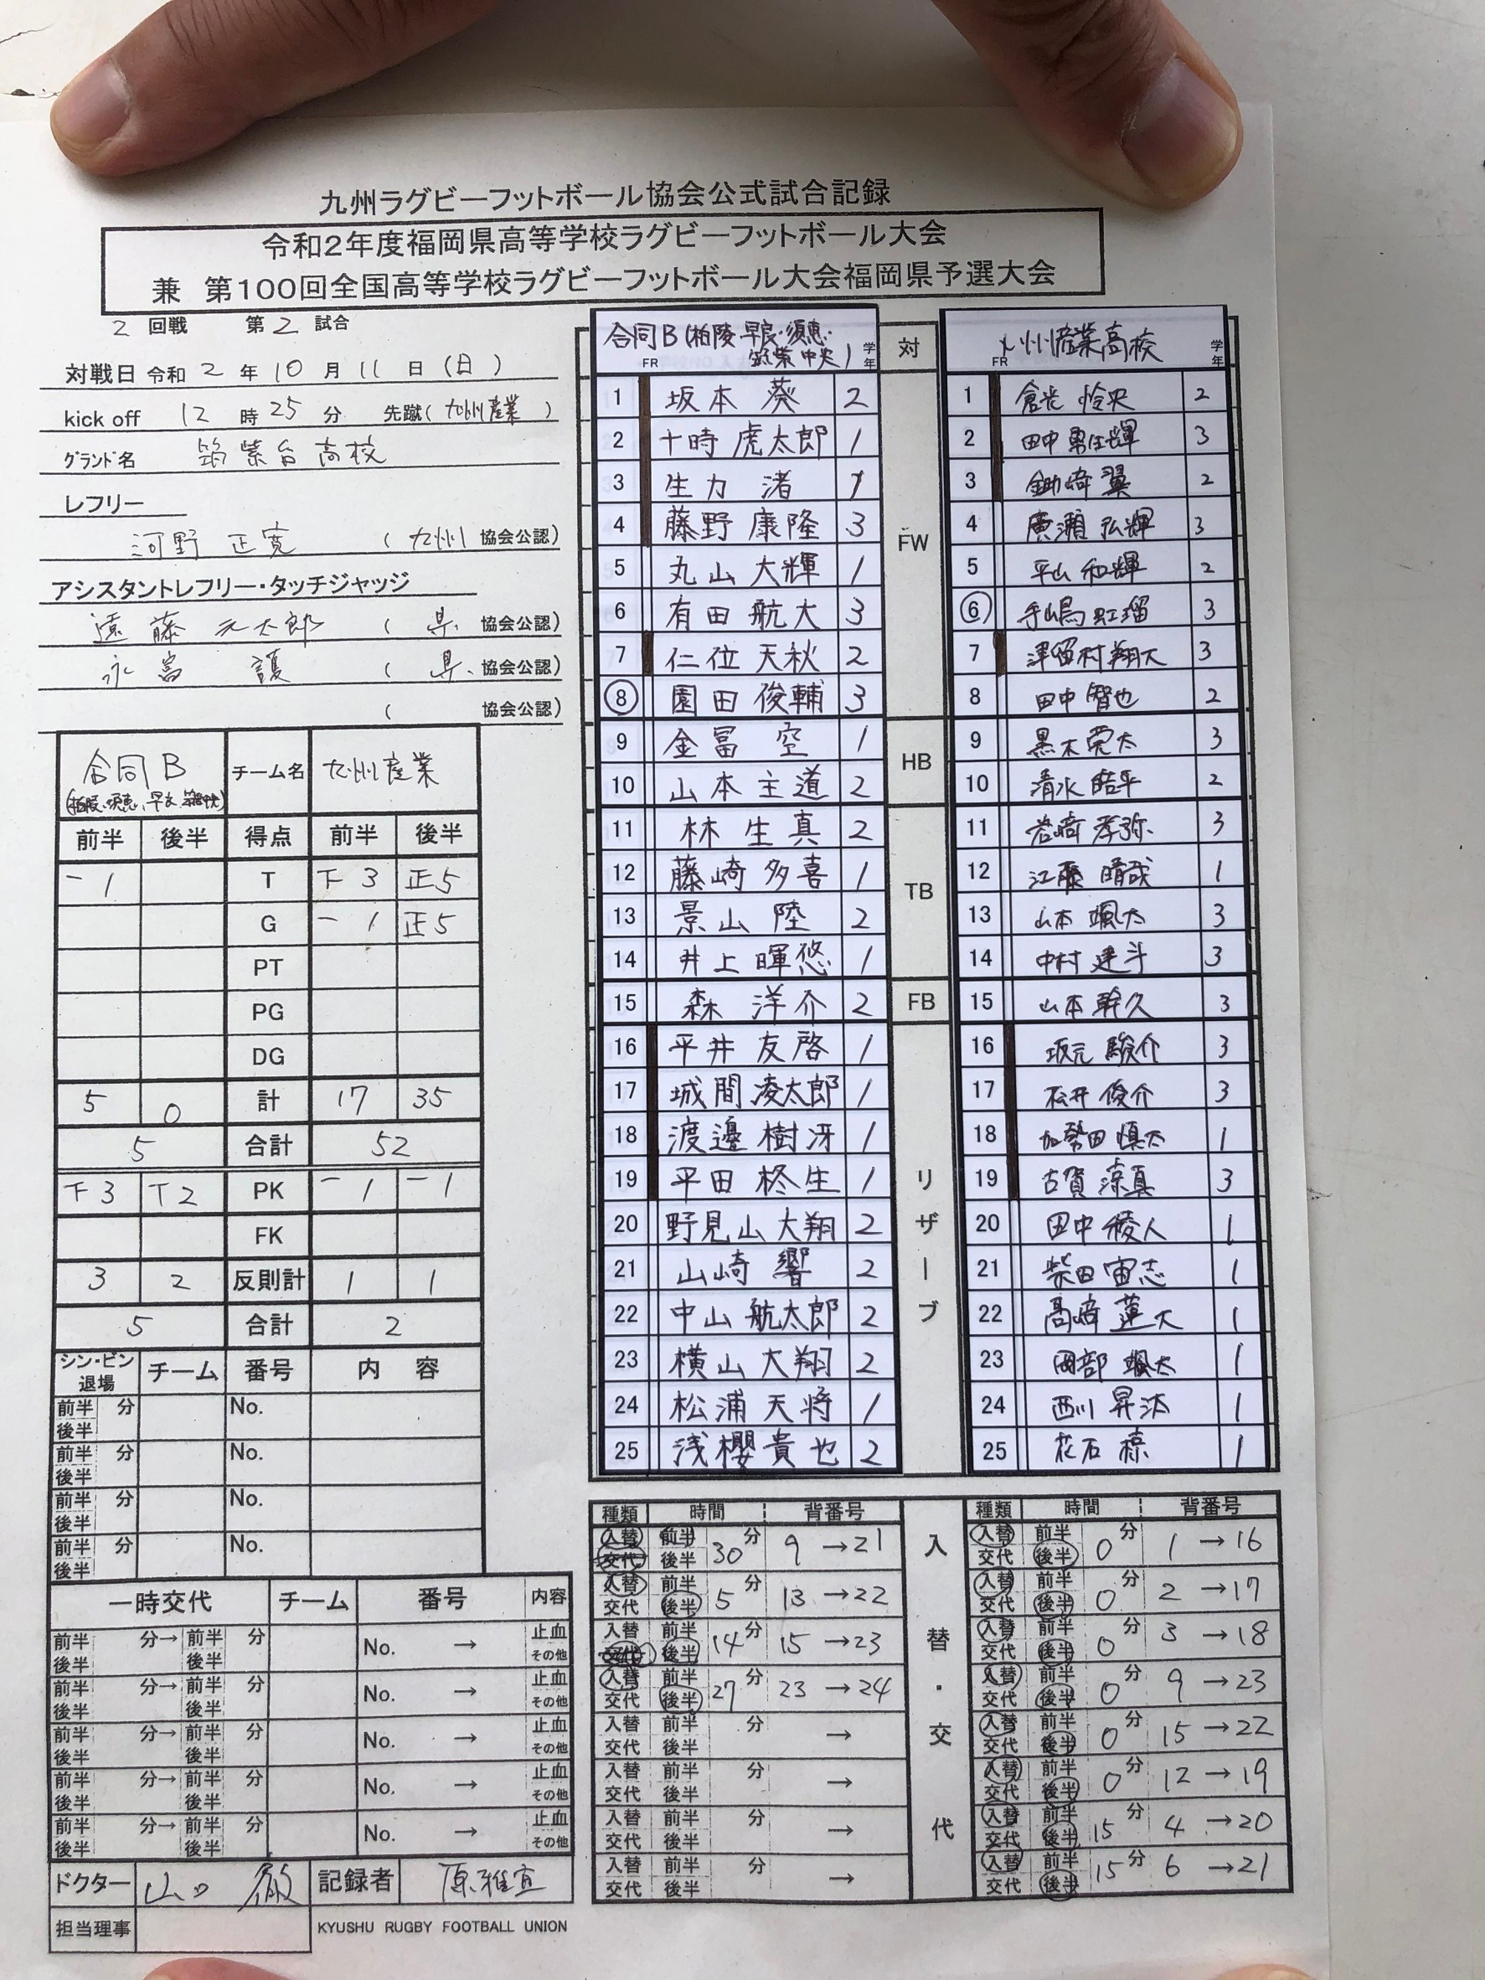 九州ラグビーフットボール協会公式試合記録
令和2年度福岡県高等学校ラグビーフットボール大会
兼 第100回全国高等学校ラグビーフットボール大会福岡県予選大会
2 回戦 第2 試合
対戦日 令和 2 年 10 月 11 日 (日)
kick off 12 時 25 分 先蹴(九州産業)
グランド名 筑紫台高校
レフリー
河野 正寛 (九州 協会公認)
アシスタントレフリー・タッチジャッジ
遠藤 元太郎 (県 協会公認)
永富 護 (県 協会公認)
( 協会公認)
合同B チーム名 九州産業
前半 後半 得点 前半 後半
一 1 T 下 3 正5
G 一 1 正5
PT
PG
DG
5 0 計 17 35
5 合計 52
下3 T2 PK 一1 一1
FK
3 2 反則計 1 1
5 合計 2
シン・ビン 退場 チーム 番号 内 容
前半 後半 分 No.
前半 後半 分 No.
前半 後半 分 No.
前半 後半 分 No.
一時交代 チーム 番号 内容
前半 後半 分→ 前半 後半 分 No. → 止血 その他
前半 後半 分→ 前半 後半 分 No. → 止血 その他
前半 後半 分→ 前半 後半 分 No. → 止血 その他
前半 後半 分→ 前半 後半 分 No. → 止血 その他
前半 後半 分→ 前半 後半 分 No. → 止血 その他
ドクター 山口 徹 記録者 原雅宜
担当理事 KYUSHU RUGBY FOOTBALL UNION
合同B(柏陵・早良・須恵・筑紫中央) FR 学年 対 九州産業高校 FR 学年
1 坂本 葵 2 1 倉光 怜央 2
2 十時 虎太郎 1 2 田中 勇輝 3
3 生力 渚 1 3 鋤崎 翼 2
4 藤野 康隆 3 FW 4 廣瀬 弘輝 3
5 丸山 大輝 1 5 平山 和輝 2
6 有田 航大 3 6 手嶋 虹瑠 3
7 仁位 天秋 2 7 津留村 翔大 3
8 園田 俊輔 3 8 田中 智也 2
9 金冨 空 1 HB 9 黒木 栄太 3
10 山本 主道 2 10 清水 皓平 2
11 林 生真 2 11 岩﨑 孝弥 3
12 藤崎 多喜 1 TB 12 江藤 晴哉 1
13 景山 陸 2 13 山本 颯太 3
14 井上 暉悠 1 14 中村 建斗 3
15 森 洋介 2 FB 15 山本 幹久 3
16 平井 友啓 1 16 坂元 駿介 3
17 城間 凌太郎 1 17 松井 俊介 3
18 渡邊 樹冴 1 18 加勢田 慎太 1
19 平田 柊生 1 リザーブ 19 古賀 涼真 3
20 野見山 大翔 2 20 田中 稜人 1
21 山崎 響 2 21 柴田 宙志 1
22 中山 航太郎 2 22 髙﨑 蓮大 1
23 横山 大翔 2 23 岡部 颯太 1
24 松浦 天将 1 24 西川 昇汰 1
25 浅櫻 貴也 2 25 花石 椋 1
種類 時間 背番号 入替・交代 種類 時間 背番号
入替 交代 前半 後半 30分 9→21 入替 交代 前半 後半 0分 1→16
入替 交代 前半 後半 5分 13→22 入替 交代 前半 後半 0分 2→17
入替 交代 前半 後半 14分 15→23 入替 交代 前半 後半 0分 3→18
入替 交代 前半 後半 27分 23→24 入替 交代 前半 後半 0分 9→23
入替 交代 前半 後半 分 → 入替 交代 前半 後半 0分 15→22
入替 交代 前半 後半 分 → 入替 交代 前半 後半 0分 12→19
入替 交代 前半 後半 分 → 入替 交代 前半 後半 15分 4→20
入替 交代 前半 後半 分 → 入替 交代 前半 後半 15分 6→21